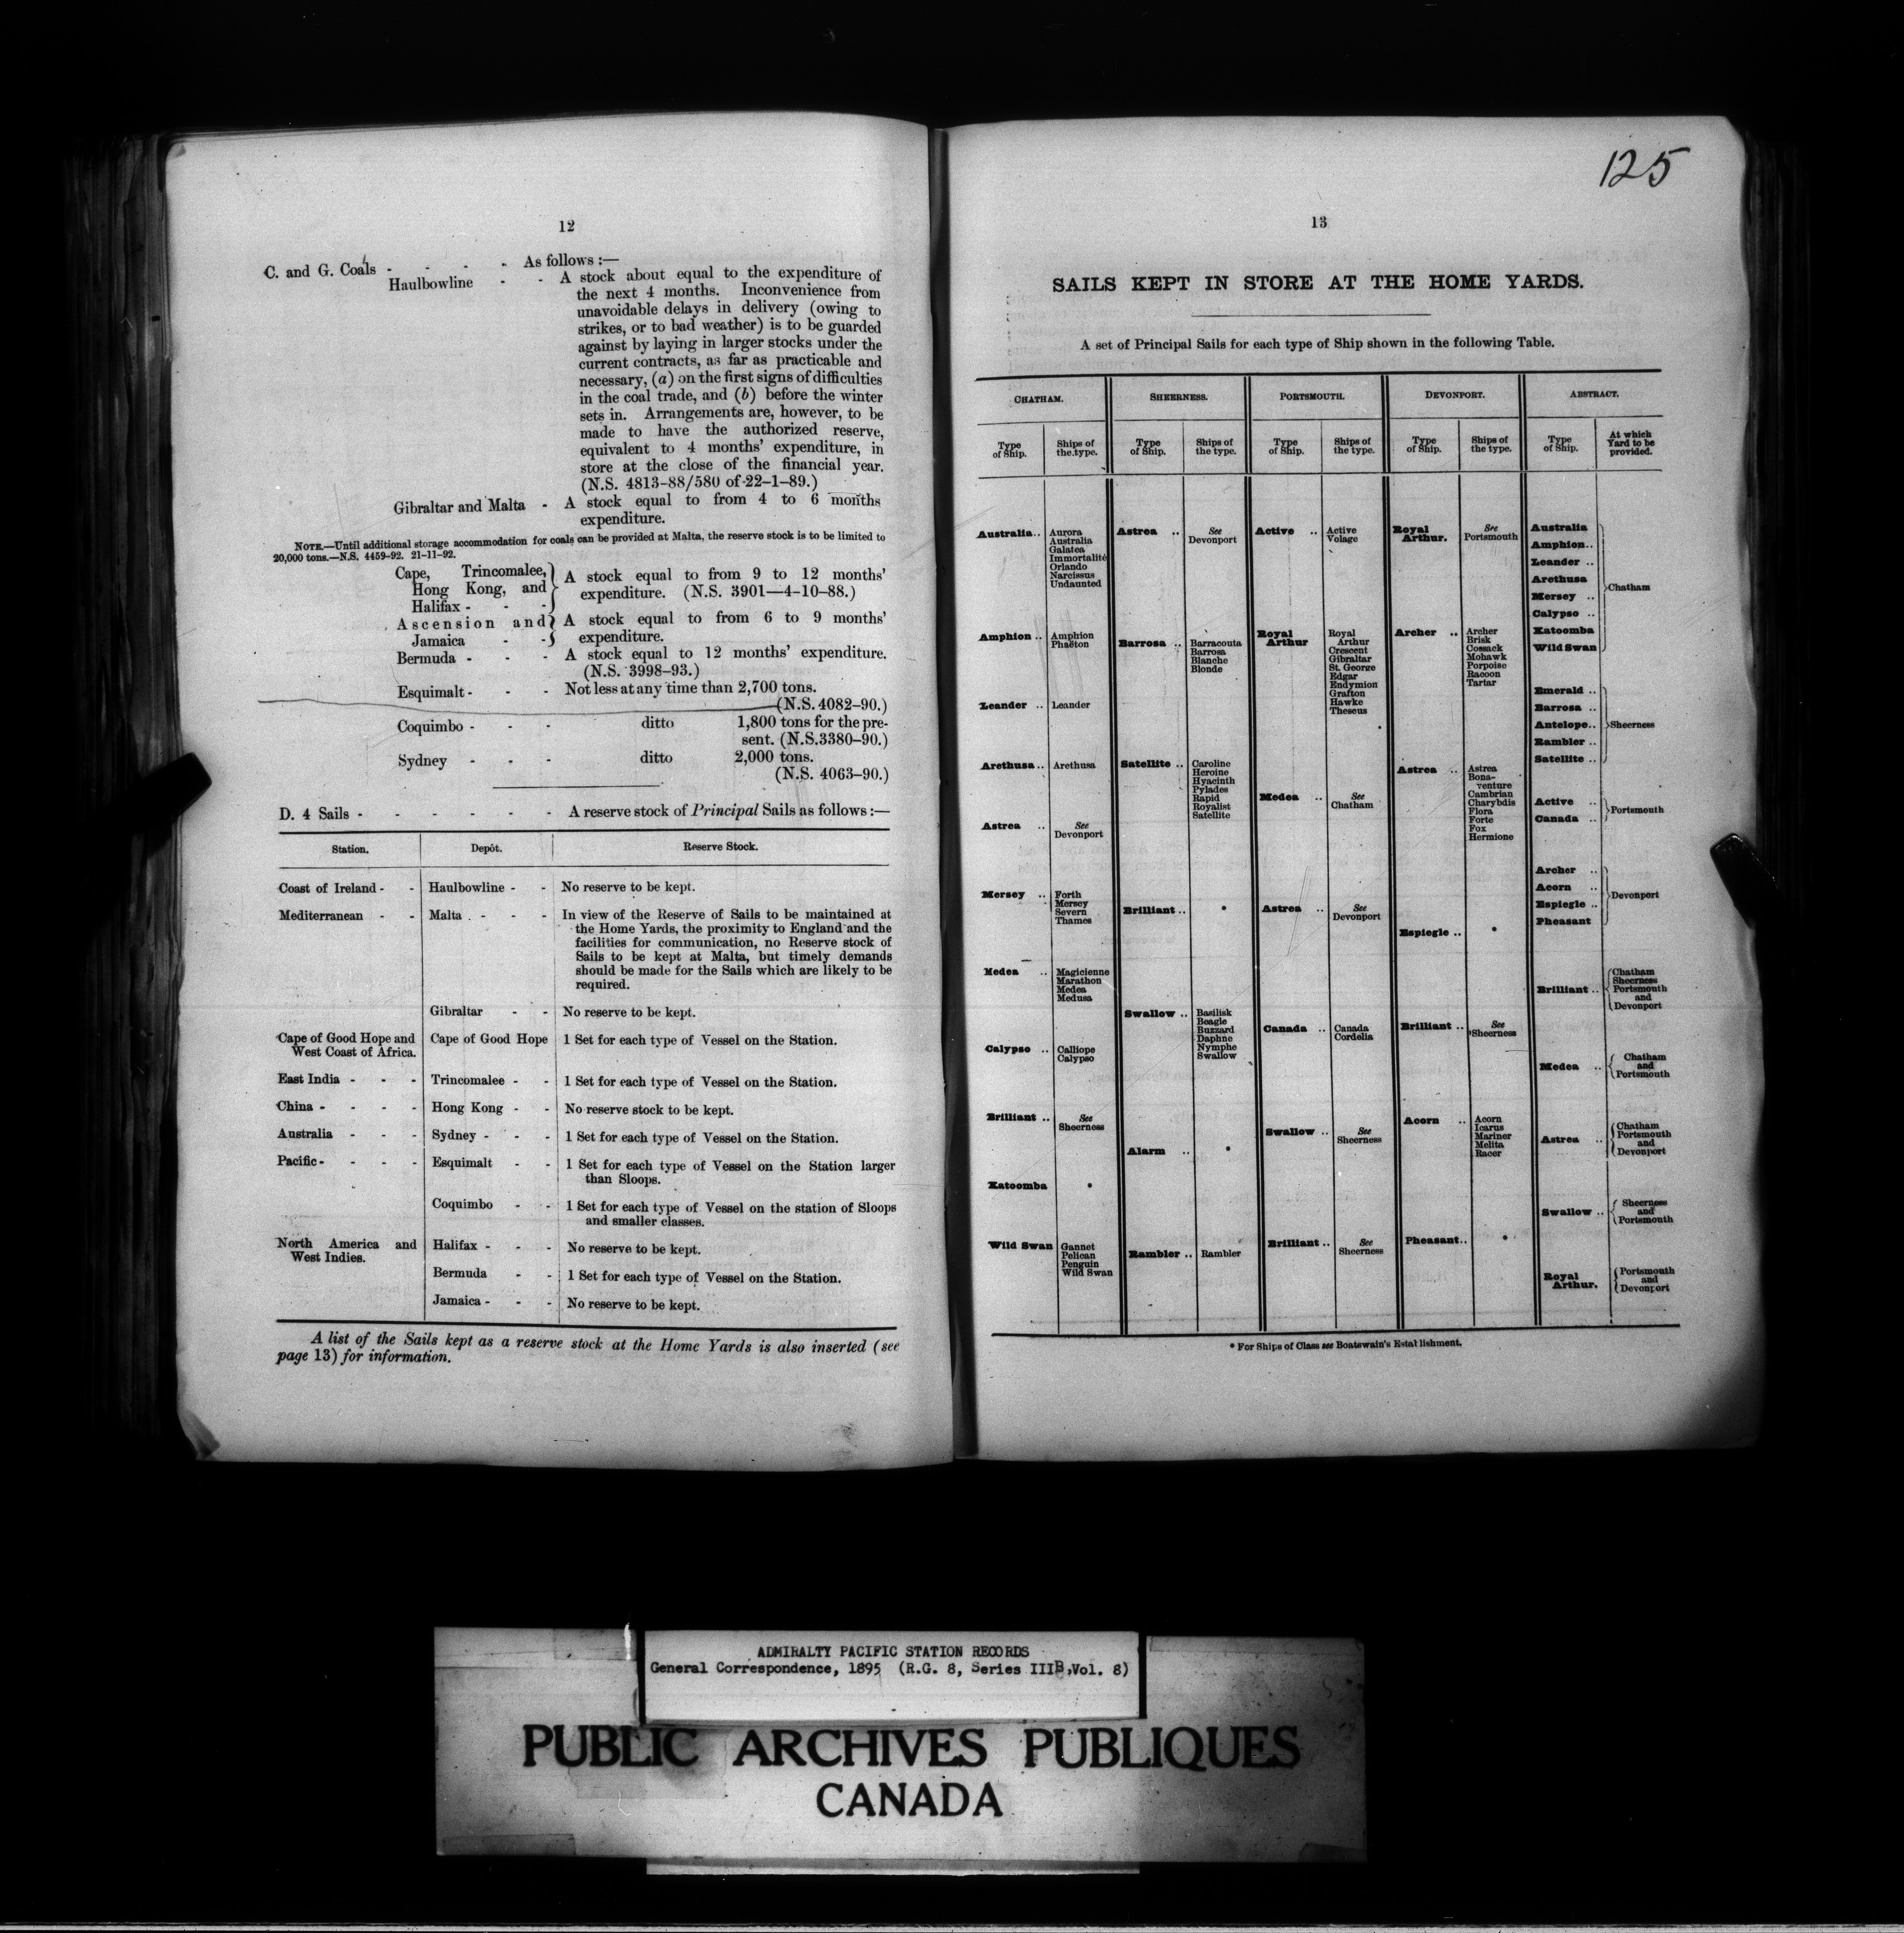 12
C. and G. Coals - - - - As follows :—
Haulbowline - - A stock about equal to the expenditure of
the next 4 months. Inconvenience from
unavoidable delays in delivery (owing to
strikes, or to bad weather) is to be guarded
against by laying in larger stocks under the
current contracts, as far as practicable and
necessary, (a) on the first signs of difficulties
in the coal trade, and (b) before the winter
sets in. Arrangements are, however, to be
made to have the authorized reserve,
equivalent to 4 months' expenditure, in
store at the close of the financial year.
(N.S. 4813-88/580 of 22-1-89.)
Gibraltar and Malta - A stock equal to from 4 to 6 months
expenditure.
NOTE.—Until additional storage accommodation for coals can be provided at Malta, the reserve stock is to be limited to
20,000 tons.—N.S. 4459-92. 21-11-92.
Cape, Trincomalee,
Hong Kong, and
Halifax - - -
A stock equal to from 9 to 12 months'
expenditure. (N.S. 3901—4-10-88.)
Ascension and
Jamaica - -
A stock equal to from 6 to 9 months'
expenditure.
Bermuda - - - A stock equal to 12 months' expenditure.
(N.S. 3998-93.)
Esquimalt - - - Not less at any time than 2,700 tons.
(N.S. 4082-90.)
Coquimbo - - - ditto 1,800 tons for the pre-
sent. (N.S. 3380-90.)
Sydney - - - ditto 2,000 tons.
(N.S. 4063-90.)
D. 4 Sails - - - - - - A reserve stock of Principal Sails as follows :—
Station. Depôt. Reserve Stock.
Coast of Ireland - - Haulbowline - - No reserve to be kept.
Mediterranean - - Malta - - - In view of the Reserve of Sails to be maintained at
the Home Yards, the proximity to England and the
facilities for communication, no Reserve stock of
Sails to be kept at Malta, but timely demands
should be made for the Sails which are likely to be
required.
Gibraltar - - No reserve to be kept.
Cape of Good Hope and
West Coast of Africa.
Cape of Good Hope 1 Set for each type of Vessel on the Station.
East India - - - Trincomalee - - 1 Set for each type of Vessel on the Station.
China - - - - Hong Kong - - No reserve stock to be kept.
Australia - - - Sydney - - - 1 Set for each type of Vessel on the Station.
Pacific - - - - Esquimalt - - 1 Set for each type of Vessel on the Station larger
than Sloops.
Coquimbo - - 1 Set for each type of Vessel on the station of Sloops
and smaller classes.
North America and
West Indies.
Halifax - - - No reserve to be kept.
Bermuda - - 1 Set for each type of Vessel on the Station.
Jamaica - - - No reserve to be kept.
A list of the Sails kept as a reserve stock at the Home Yards is also inserted (see
page 13) for information.
125
13
SAILS KEPT IN STORE AT THE HOME YARDS.
A set of Principal Sails for each type of Ship shown in the following Table.
CHATHAM. SHEERNESS. PORTSMOUTH. DEVONPORT. ABSTRACT.
CHATHAM.
Type
of Ship.
Ships of
the type.
Australia .. Aurora
Australia
Galatea
Immortalité
Orlando
Narcissus
Undaunted
Amphion .. Amphion
Phaëton
Leander .. Leander
Arethusa .. Arethusa
Astrea .. See
Devonport
Mersey .. Forth
Mersey
Severn
Thames
Medea .. Magicienne
Marathon
Medea
Medusa
Calypso .. Calliope
Calypso
Brilliant .. See
Sheerness
Katoomba *
Wild Swan Gannet
Pelican
Penguin
Wild Swan
Type
of Ship.
Ships of
the type.
Astrea .. See
Devonport
Barrosa .. Barracouta
Barrosa
Blanche
Blonde
Satellite .. Caroline
Heroine
Hyacinth
Pylades
Rapid
Royalist
Satellite
Brilliant .. *
Swallow .. Basilisk
Beagle
Buzzard
Daphne
Nymphe
Swallow
Alarm .. *
Rambler .. Rambler
Type
of Ship.
Ships of
the type.
Active .. Active
Volage
Royal
Arthur
Royal
Arthur
Crescent
Gibraltar
St. George
Edgar
Endymion
Grafton
Hawke
Theseus
Medea .. See
Chatham
Astrea .. See
Devonport
Canada .. Canada
Cordelia
Swallow .. See
Sheerness
Brilliant .. See
Sheerness
Type
of Ship.
Ships of
the type.
Royal
Arthur.
See
Portsmouth
Archer .. Archer
Brisk
Cossack
Mohawk
Porpoise
Racoon
Tartar
Astrea .. Astrea
Bona-
venture
Cambrian
Charybdis
Flora
Forte
Fox
Hermione
Espiegle .. *
Brilliant .. See
Sheerness
Acorn .. Acorn
Icarus
Mariner
Melita
Racer
Pheasant .. *
Type
of Ship.
At which
Yard to be
provided.
Australia
Amphion ..
Leander ..
Arethusa
Mersey ..
Calypso ..
Katoomba
Wild Swan
Chatham
Emerald ..
Barrosa ..
Antelope ..
Rambler ..
Satellite ..
Sheerness
Active ..
Canada ..
Portsmouth
Archer ..
Acorn ..
Espiegle ..
Pheasant
Devonport
Brilliant .. Chatham
Sheerness
Portsmouth
and
Devonport
Medea .. Chatham
and
Portsmouth
Astrea .. Chatham
Portsmouth
and
Devonport
Swallow .. Sheerness
and
Portsmouth
Royal
Arthur.
Portsmouth
and
Devonport
* For Ships of Class see Boatswain's Establishment.
ADMIRALTY PACIFIC STATION RECORDS
General Correspondence, 1895 (R.G. 8, Series IIIB, Vol. 8)
PUBLIC ARCHIVES PUBLIQUES
CANADA